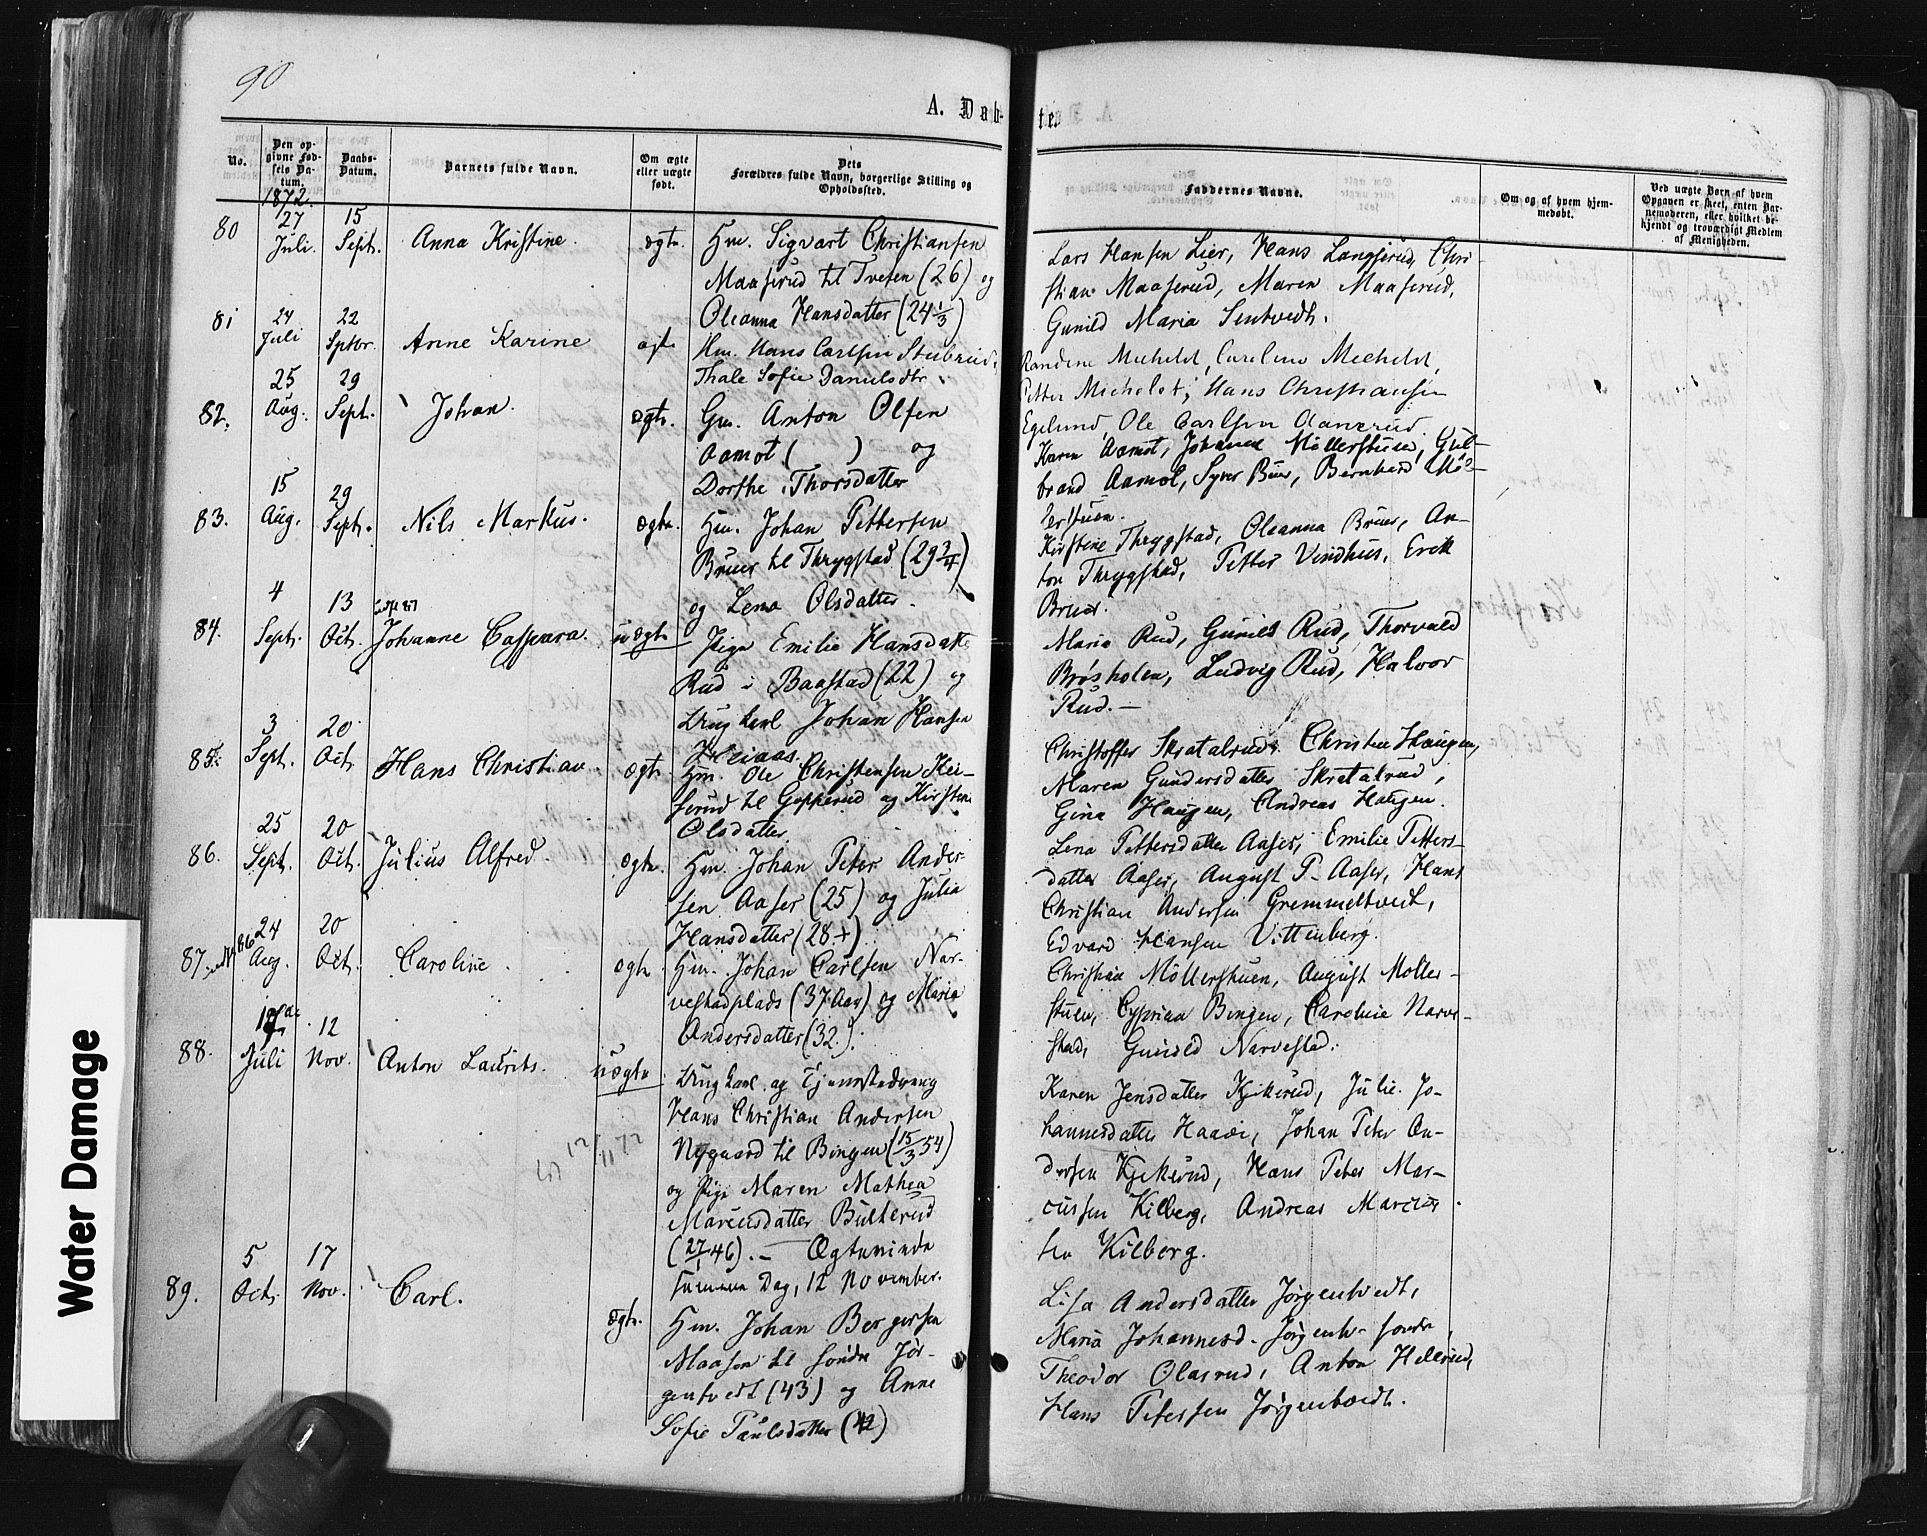 90
A. Døb-
te.
No.
Den op-
givne Fød-
sels Da-
tum.
Daabs-
Datum.
Barnets fulde Navn.
Om ægte
eller uægte
født.
Dets
Forældres fulde Navn, borgerlige Stilling og
Opholdssted.
Faddernes Navne.
Om og af hvem hjem-
medøbt.
Ved uægte Børn af hvem
Opgaven er skeet, enten Bar-
nemoderen, eller hvilket be-
kjendt og troværdigt Medlem
af Menigheden.
1872.
80
27
Juli.
15
Sept.
Anna Kristine.
ægte.
Gm. Sigvart Christiansen
Maaserud til Tveten (26) og
Oleanna Hansdatter (24 1/3)
Lars Hansen Lier, Hans Langserud, Chri-
stian Maaserud, Maren Maaserud,
Gunild Maria Sentvedt.
81
24
Juli
22
Sptbr.
Anne Karine
ægte
Hm. Hans Carlsen Stubrud,
Thale Sofie Danielsdtr.
Randine Michelet, Caroline Michelet,
Petter Michelet, Hans Christiansen
Egelund, Ole Carlsen
82.
25
Aug.
29
Sept.
Johan.
ægte.
Gm. Anton Olsen
Aamot ( ) og
Dorthe Thorsdatter
Karen Aamot, Johanne Møllerstuen, Gul-
brand Aamot, Syver Bue, Bernhard Møl-
lerstuen.
83.
15
Aug.
29
Sept.
Nils Markus.
ægte.
Hm. Johan Pettersen
Bruer til Thrygstad (29 3/4)
og Lena Olsdatter.
Kirstine Thrygstad, Oleanna Bruer, An-
ton Thrygstad, Petter Vindhus, Erik
Bruer.
84.
4
Sept.
13
Oct.
Johanne Caspara.
uægte
Pige Emilie Hansdatter
Rud i Baastad (22) og
Ungkarl Johan Hansen
Heiaas.
Maria Rud, Gunild Rud, Thorvald
Brøsholen, Ludvig Rud, Halvor
Rud.—
85.
3
Sept.
20
Oct.
Hans Christian
ægte
Hm. Ole Christensen Kei-
serud til Gopperud og Kirsten
Olsdatter
Christoffer Skratalrud, Christen Haugen,
Maren Gundersdatter Skratalrud,
Gina Haugen, Andreas Haugen.
86.
25
Sept.
20
Oct.
Julius Alfred.
ægte.
Hm. Johan Peter Ander-
sen Aaser (25) og Julia
Hansdatter (28 +)
Lena Pettersdatter Aaser, Emilie Petters-
datter Aaser, August P. Aaser, Hans
Christian Andersen Gremmeltvedt,
Edvard Hansen Vittenberg.
87
24
Aug.
20
Oct.
Caroline.
ægte
Hm. Johan Carlsen Nar-
vestadplads (37 Aar) og Maria
Andersdatter (32.).
Christian Möllerstuen, August Møller-
stuen, Cyprian Bingen, Caroline Narve-
stad, Gunild Narvestad.
88.
Juli
12
Nov.
Anton Laurits.
uægte
12/11 72
Ungkarl og Tjenestedreng
Hans Christian Andersen
Nygaard til Bingen (15/3 54)
og Pige Maren Mathea
Marcusdatter Bulterud
(27/1 46).— Ægteviede
samme Dag, 12 November.
Karen Jensdatter Kjikerud, Julie Jo-
hannesdatter Haaøi, Johan Peter An-
dersen Kjikerud, Hans Peter Mar-
cussen Kilberg, Andreas Marcus-
sen Kilberg.
89.
5
Oct.
17
Nov.
Carl.
ægte.
Hm. Johan Bergersen
Maasen til søndre Jør-
gentvedt (43) og Anne
Sofie Paulsdatter (42)
Lisa Andersdatter Jørgentvedt,
Maria Johannesd. Jørgentv. søndre,
Theodor Olasrud, Anton Hellerud,
Hans Petersen Jørgentvedt.
Water Damage